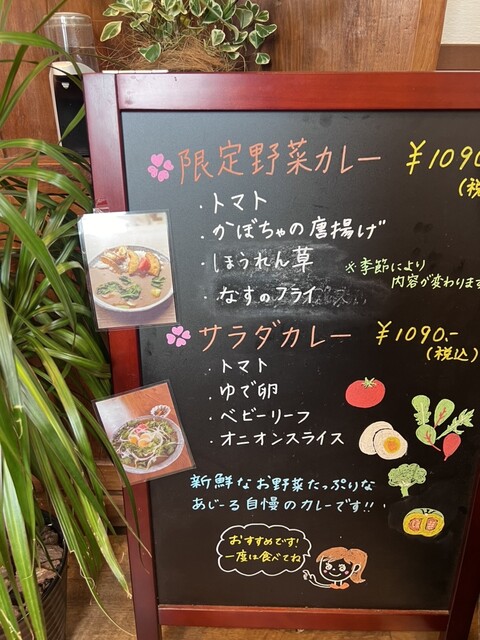 限定野菜カレー ¥1090
(税
・トマト
・かぼちゃの唐揚げ
・ほうれん草
・なすのフライ
※季節により
内容が変わります
サラダカレー ¥1090.-
(税込)
・トマト
・ゆで卵
・ベビーリーフ
・オニオンスライス
新鮮なお野菜たっぷりな
あじーる自慢のカレーです!!
おすすめです!
一度は食べてね